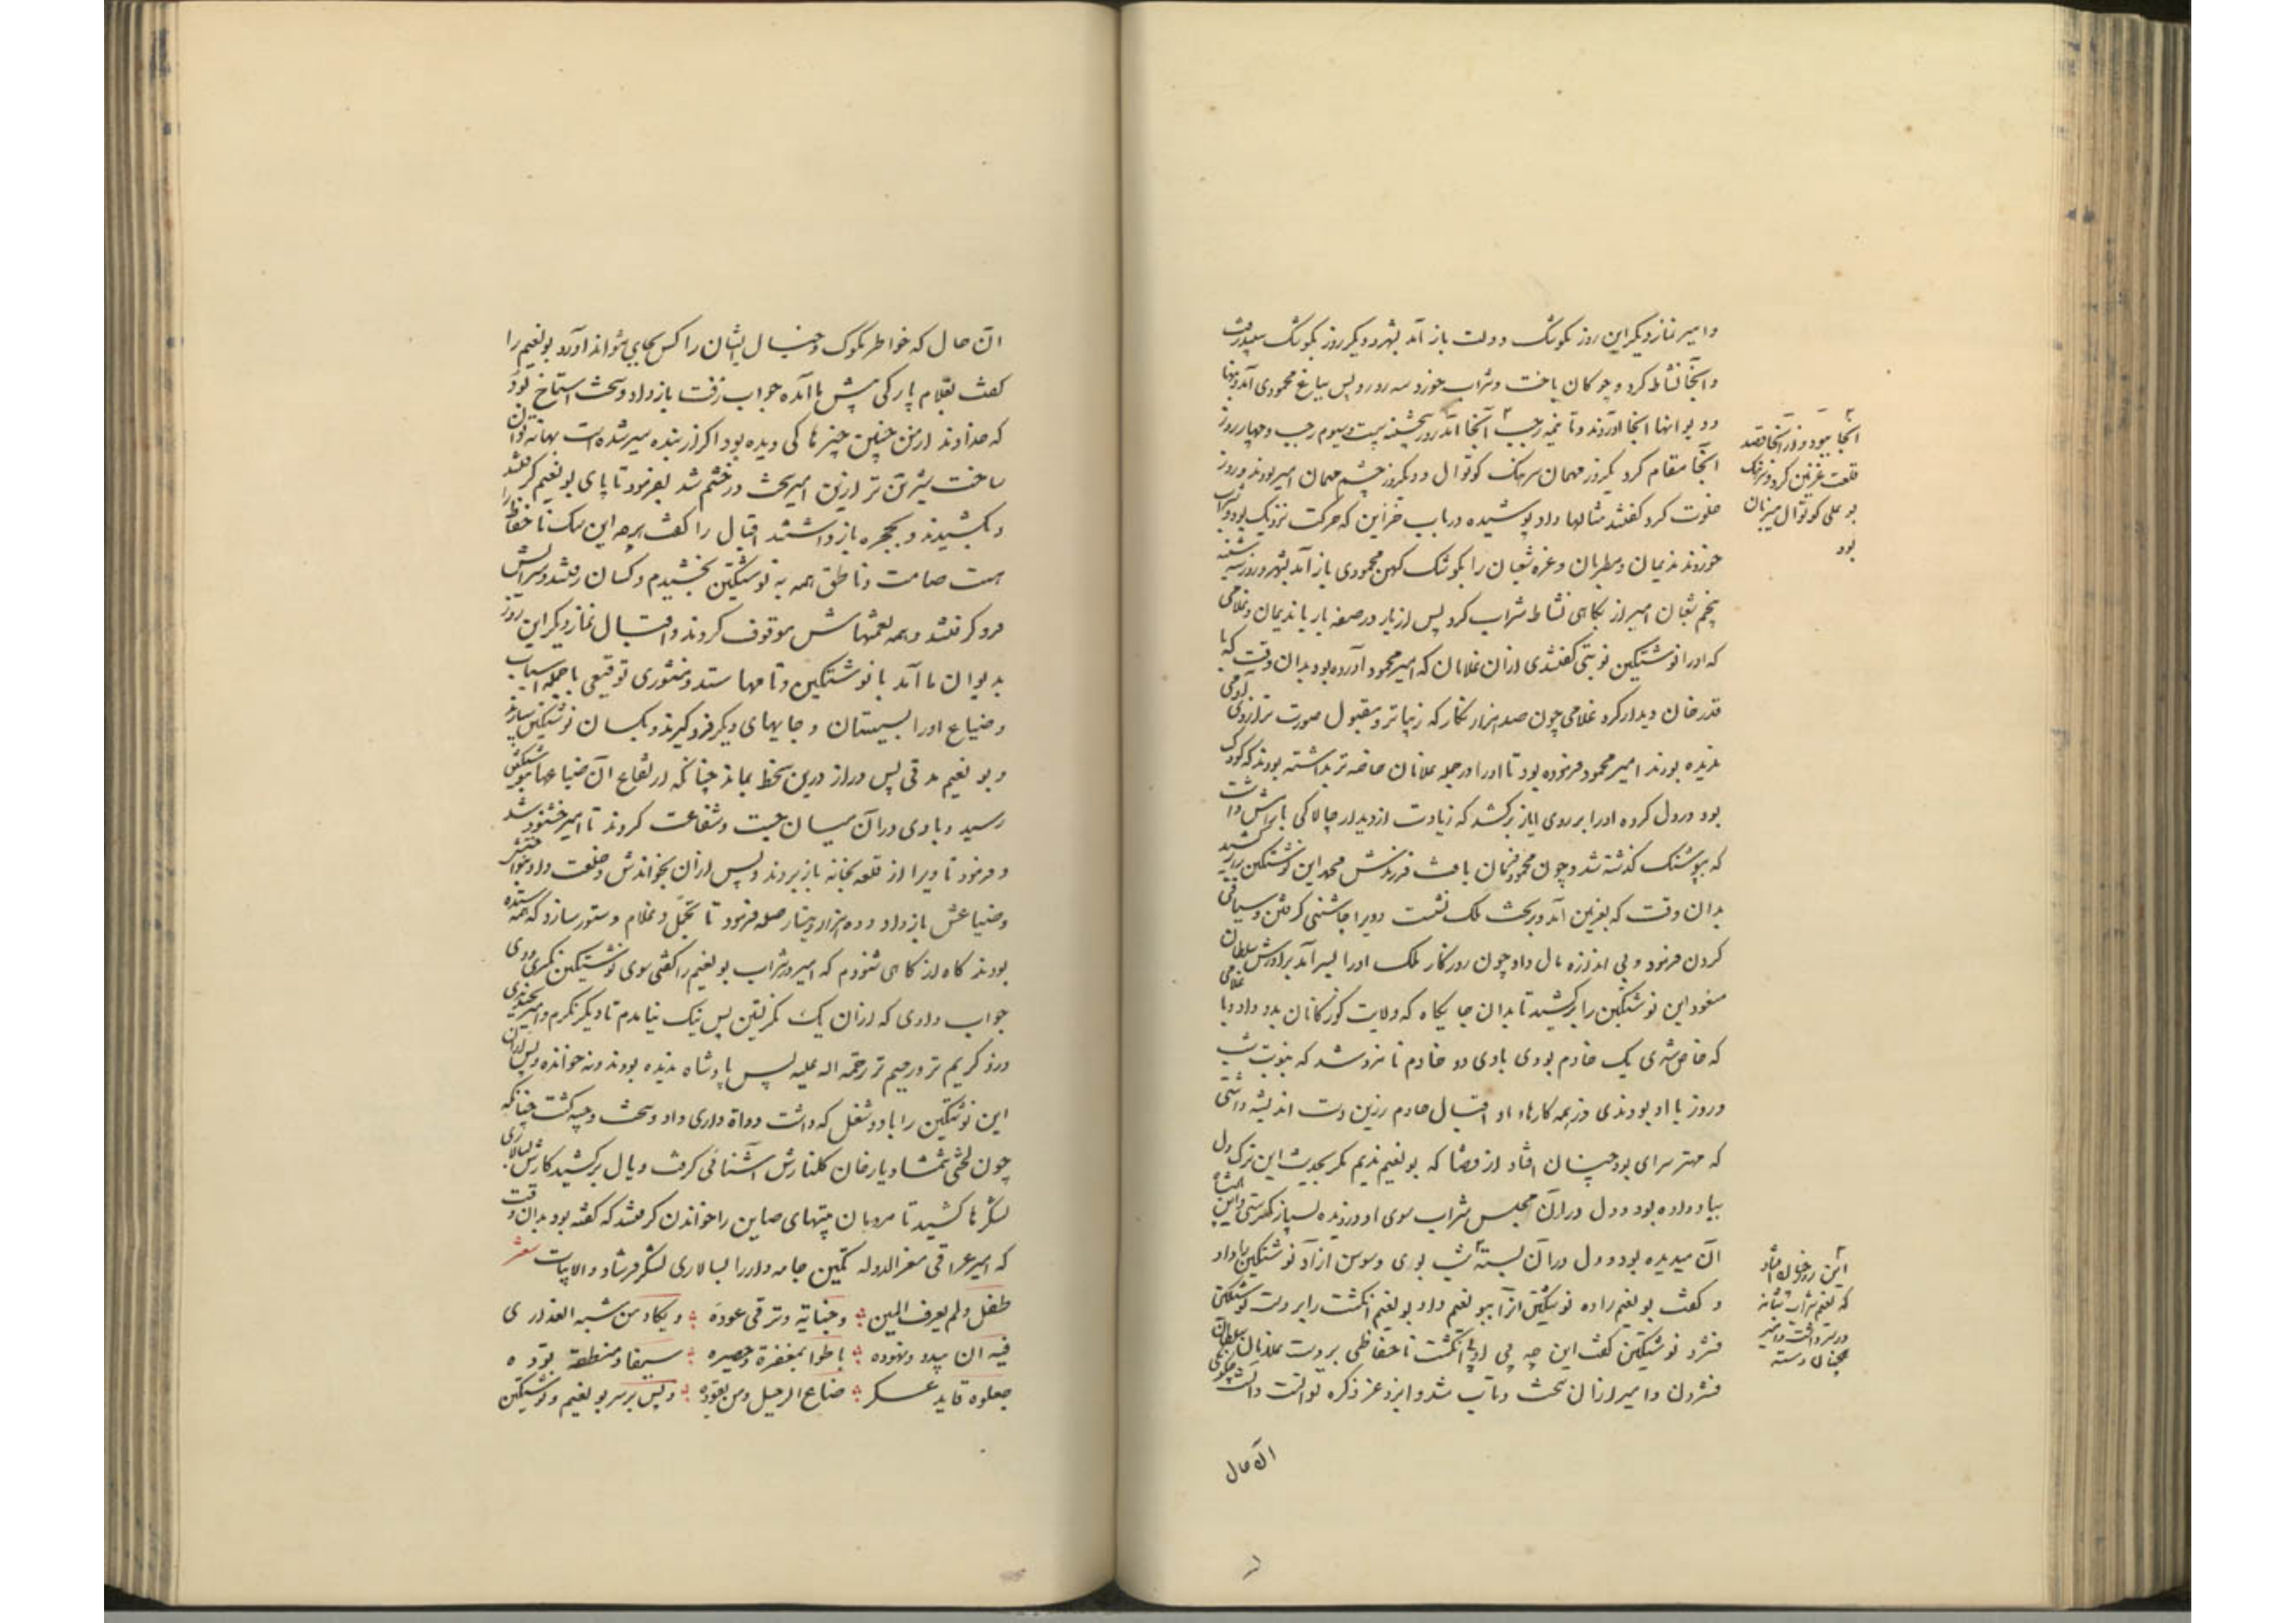 وامیر نماز دیگر این روز بکوشک دولت باز آمد بشهر و دیگر روز بکوشک سپید رفت
وآنجا نشاط کرد و چوکان باخت و شراب خورد سه روز و پس بباغ محمودی آمد و بنها
و دیوانها آنجا آوردند و تا نیمه رجب آنجا روز پنجشنبه بیست وسیوم رجب و چهار روز
آنجا مقام کرد یکروز مهمان سرهنک کوتوال و دیکروز حشم مهمان امیر بودند و روز
خلوت کرد کفتند مثالها داد پوشیده در باب خزاین که حرکت نزدیک بود و شراب
خوردند ندیمان و مطربان و غره شعبان را بکوشک کهن محمودی باز آمد بشهر و روز سه شنبه
پنجم شعبان امیر از پکاهی نشاط شراب کرد پس از بار در صفه بار با ندیمان و غلامی
که او را نوشتکین نوبتی کفتندی از آن غلامان که امیر محمود آورده بود بدان وقت که با
قدر خان دیدار کرد غلامی چون صد هزار نکار که زیباتر و مقبول صورت تر از وی آدمی
ندیده بودند امیر محمود فرموده بود تا او را در جمله غلامان خاصه تر بداشته بودند که کودک
بود و در دل کرده او را بر روی ایاز برکشد که زیادت از دیدار چالاکی با بواش داشت
که بپوشنک کذشته شد و چون محمود فرمان یافت فرزندش محمد این نوشتکین را برکشید
بدان وقت که بغزنین آمد و بر تخت ملک نشست و ویرا چاشنی کرفتن و ساقی
کردن فرمود و بی اندازه مال داد چون روزکار ملک او را بسر آمد برادرش سلطان
مسعود این نوشتکین را برکشید تا بدان جایکاه که ولایت کوزکانان بدو داد و با غلامی
که خاص شدی یک خادم بودی با وی دو خادم نامزد شد که بنوبت شب
وروز با او بودندی و از همه کارهاء او اقبال خادم زرین دست اندیشه داشتی
که مهتر سرای بود چنان افتاد از قضا که بو نعیم ندیم مکر بحدیث این ترک دل
بباد داده بود و دل در آن مجلس شراب سوی او دزدیده بسیار نکرستی و این پادشاه
آن میدیده بود و دل در آن بسته شب بوری و سوسن آزاد نوشتکین را داد
و کفت بو نعیم را ده نوشتکین آنرا ببو نعیم داد بو نعیم انکشت را بر دست نوشتکین
فشرد نوشتکین کفت این چه بی ادبی است انکشت ناحفاظی بر دست غلامان سلطان
فشردن و امیر از آن سخت در تاب شد و ایزد عز ذکره توانست دانست چکونکی
آن حال
آنجا ببود و از آنجا قصد
قلعت غزنین کرد و سرهنک
بو علی کوتوال میزبان
بود
این روز چنان افتاد
که بو نعیم شراب شبانه
در سر داشت و امیر
همچنان دسته
آن حال که خواطر ملوک و خیال ایشان را کس بجای نتواند آورد بو نعیم را
کفت بغلام بارکی پیش ما آمده جواب زفت باز داد و سخت استاخ بود
که خداوند از من چنین چیزها کی دیده بود اکر از بنده سیر شده است بهانه توان
ساخت شیرین تر ازین امیر سخت در خشم شد بفرمود تا پای بو نعیم کرفتند
و بکشیدند و بحجره باز داشتند اقبال را کفت هر چه این سک ناحفاظ را
هست صامت و ناطق همه به نوشتکین بخشیدم و کسان رفتند و سرایش
فرو کرفتند و همه نعمتهاش موقوف کردند و اقبال نماز دیکر این روز
بدیوان ما آمد با نوشتکین و نامها ستد و منشوری توقیعی با جمله اسباب
و ضیاع او را بسیستان و جایهای دیکر فرو کیرند و بکسان نوشتکین سپارند
و بو نعیم مدتی پس دراز درین سخط بماند چنانکه ارتفاع آن ضیاعها بنوشتکین
رسید و بادی در آن میان جست و شفاعت کردند تا امیر خشنود شد
و فرمود تا ویرا از قلعه بخانه باز بردند و پس از آن بخواندش و خلعت داد و بنواختش
و ضیاعش باز داد و ده هزار دینار صله فرمود تا تجمل و غلام و ستور سازد که همه ستده
بودند کاه از کاهی شنودم که امیر در شراب بو نعیم را کفتی سوی نوشتکین نکری و وی
جواب دادی که از آن یک نکریستن پس نیک نیامدم تا دیکر نکرم و امیر بخندیدی
و زو کریم تر و رحیم تر رحمه الله علیه پس پادشاه ندیده بودند و نه خوانده و پس از آن
این نوشتکین را با دو شغل که داشت دواة داری داد و سخت وجیه کشت چنانکه
چون لختی شمشاد با رخان کلنارش آشنائی کرفت و بال برکشید کارش بسالاری
لشکرها کشید تا مردمان بیتهای صابی را خواندن کرفتند که کفته بود بدان وقت
که امیر عراقی معز الدوله تکین جامه دار را بسالاری لشکر فرستاد و الابیات شعر
طفل ولم یعرف المین وجنایة وترقی عوده ویکاد من شبه العذاری
فیه ان یبدو ونهوده باطوا بمغفرة وحصیره سیفا ومنطقة تؤده
جعلوه قاید عسکر ضاع الرحیل ومن یقوده و پس بر سر بو نعیم و نوشتکین